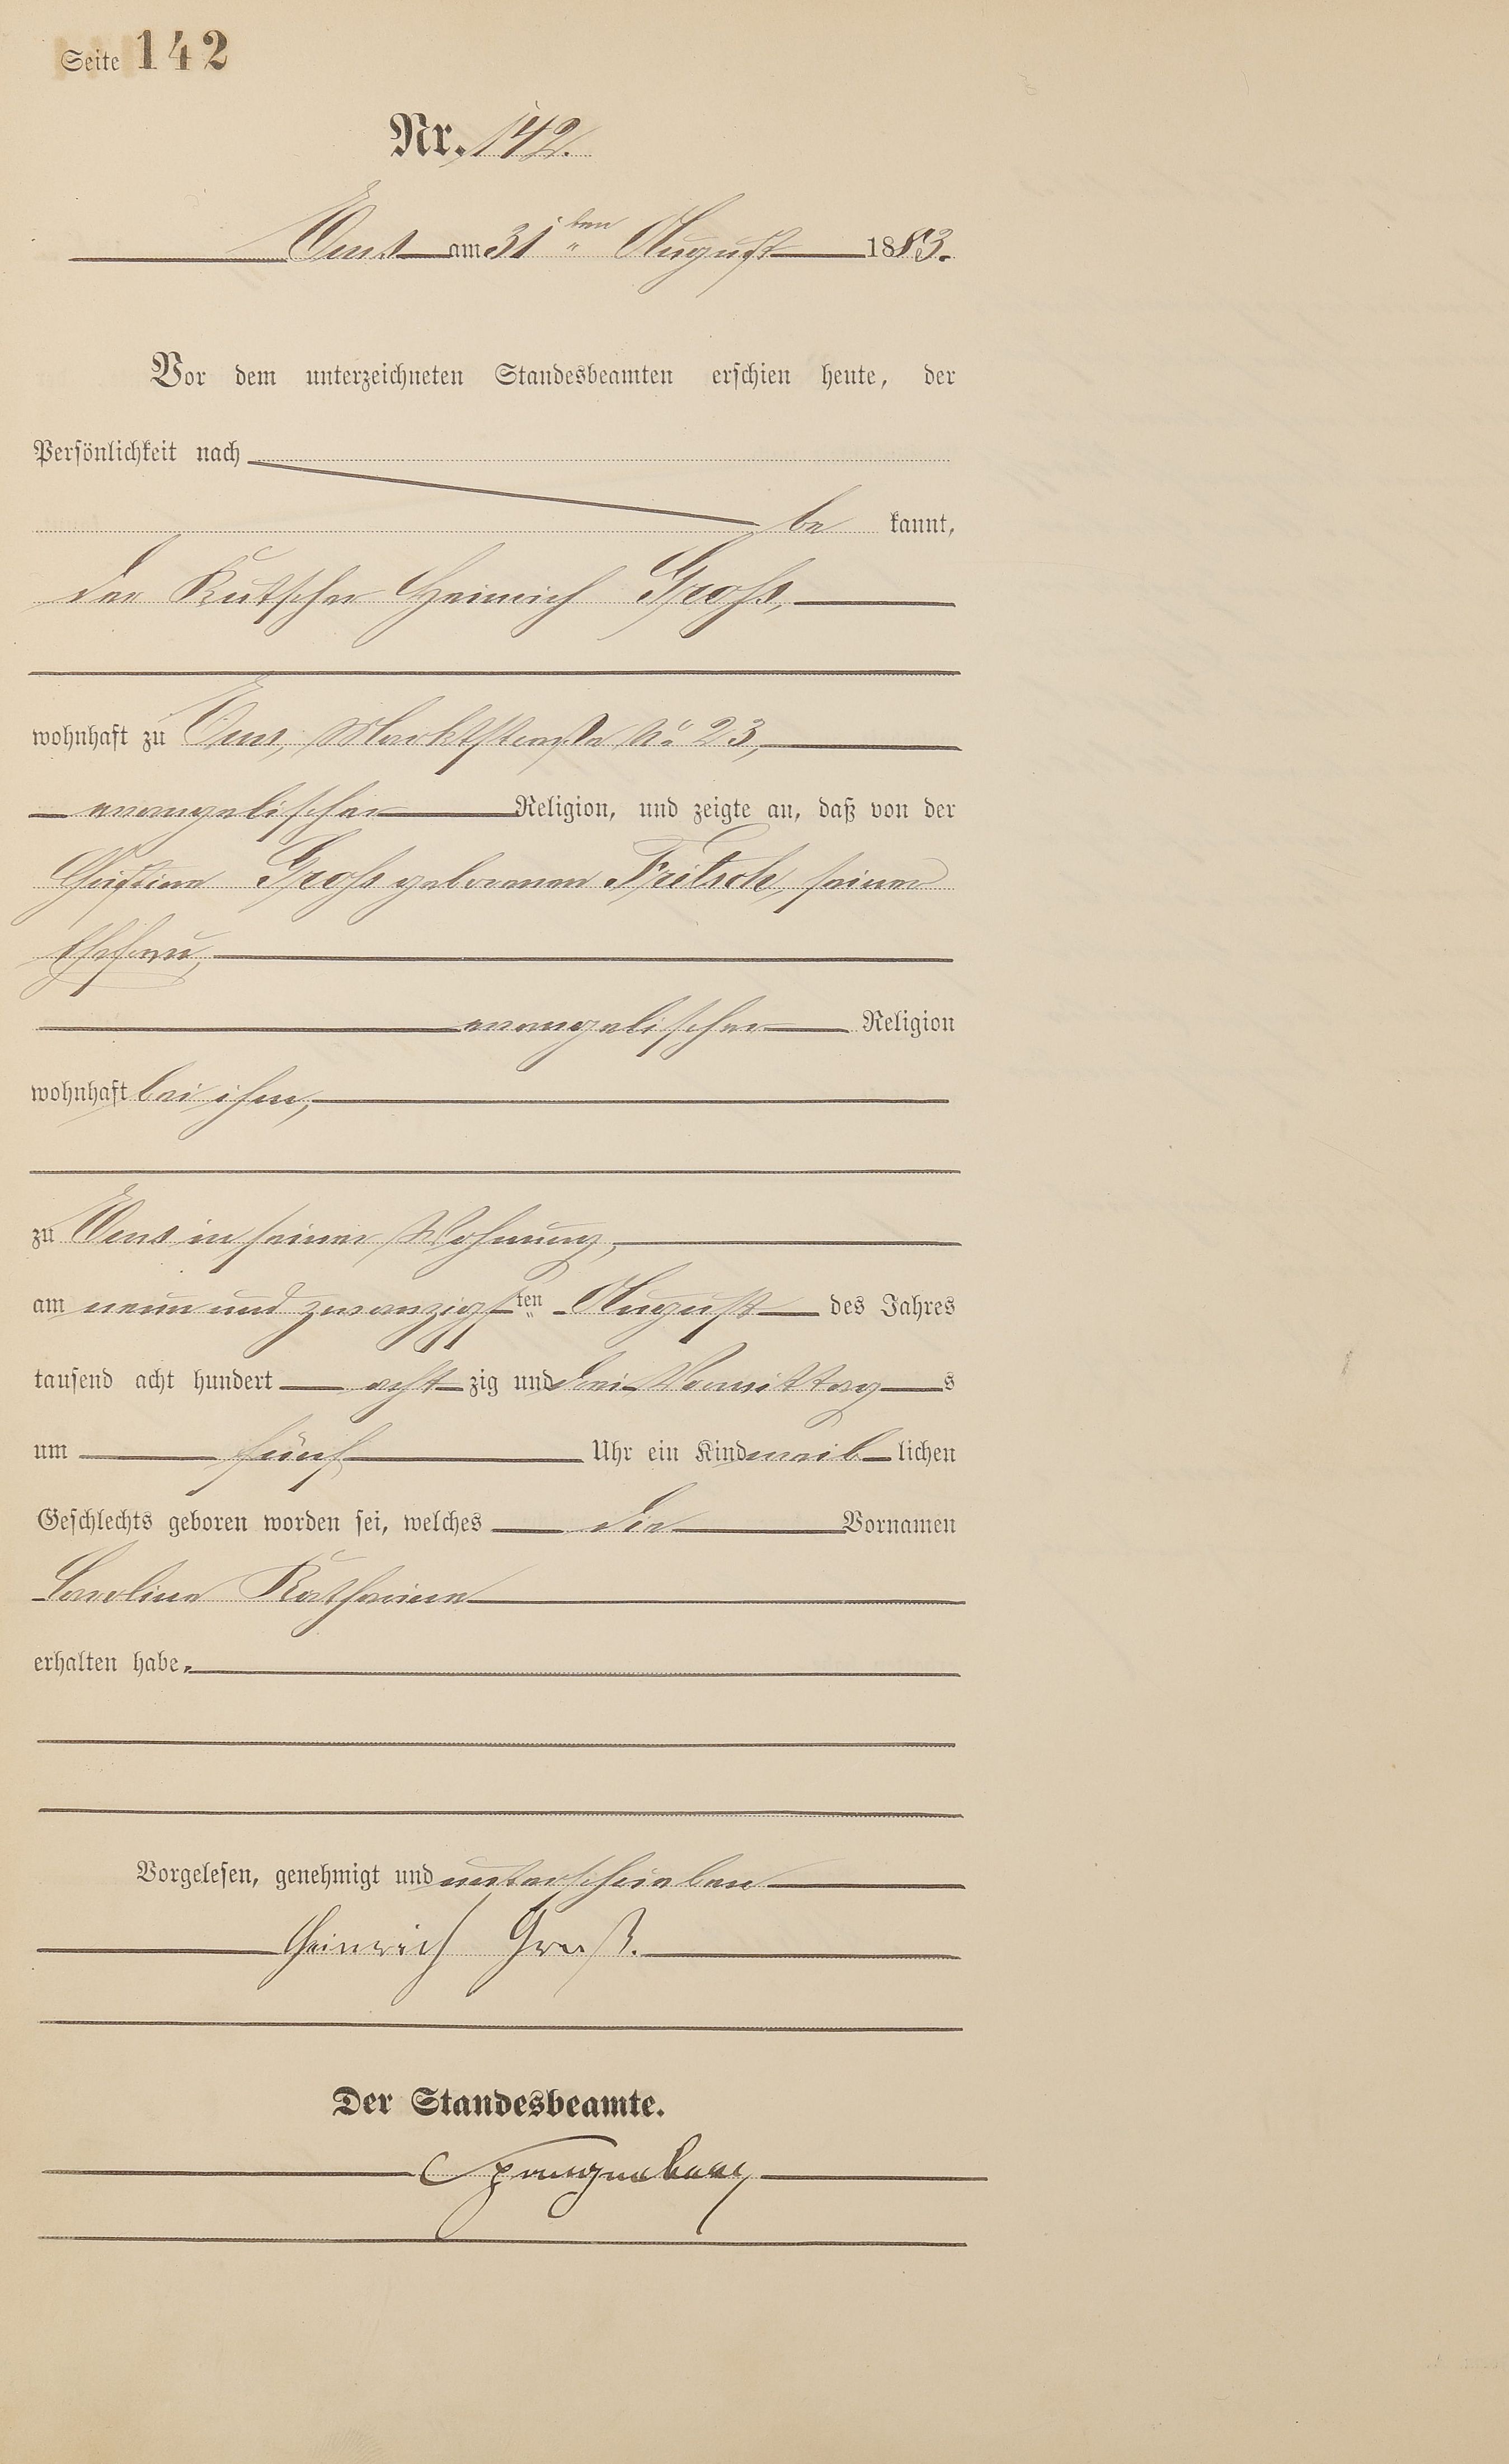 Seite 142
Nr. 142.
Ems am 31ten August 1883.
Vor dem unterzeichneten Standesbeamten erschien heute, der
Persönlichkeit nach
be kannt,
der Kutscher Heinrich Gross,
wohnhaft zu Ems, Marktstraße No 23,
evangelischer Religion, und zeigte an, daß von der
Christine Gross geborenen Fritsch, seiner
Ehefrau,
evangelischer Religion
wohnhaft bei ihm,
zu Ems in seiner Wohnung,
am neun und zwanzigsten August des Jahres
tausend acht hundert acht zig und drei Vormittag s
um fünf Uhr ein Kind weib lichen
Geschlechts geboren worden sei, welches die Vornamen
Caroline Katharine
erhalten habe.
Vorgelesen, genehmigt und unterschrieben
Heinrich Groß.
Der Standesbeamte.
Spangenberg